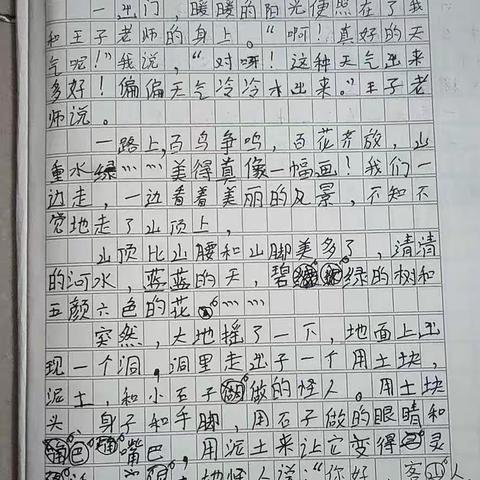 一出门，暖暖的阳光便照在了我
和王子老师的身上。“啊！真好的天
气呢！”我说，“对呀！这种天气出来
多好！偏偏天气冷冷才出来。”王子老
师说。
一路上，百鸟争鸣，百花齐放，山
重水绿……美得真像一幅画！我们一
边走，一边看着美丽的风景，不知不
觉地走了山顶上，
山顶比山腰和山脚美多了，清清
的河水，蓝蓝的天，碧绿的树和
五颜六色的花……
突然，大地摇了一下，地面上出
现一个洞，洞里走出子一个用土块，
泥土，和小石子做的怪人。用土块
头、身子和手脚，用石子做的眼睛和
嘴巴，用泥土来让它变得灵
土地怪人说：“你好，客人，